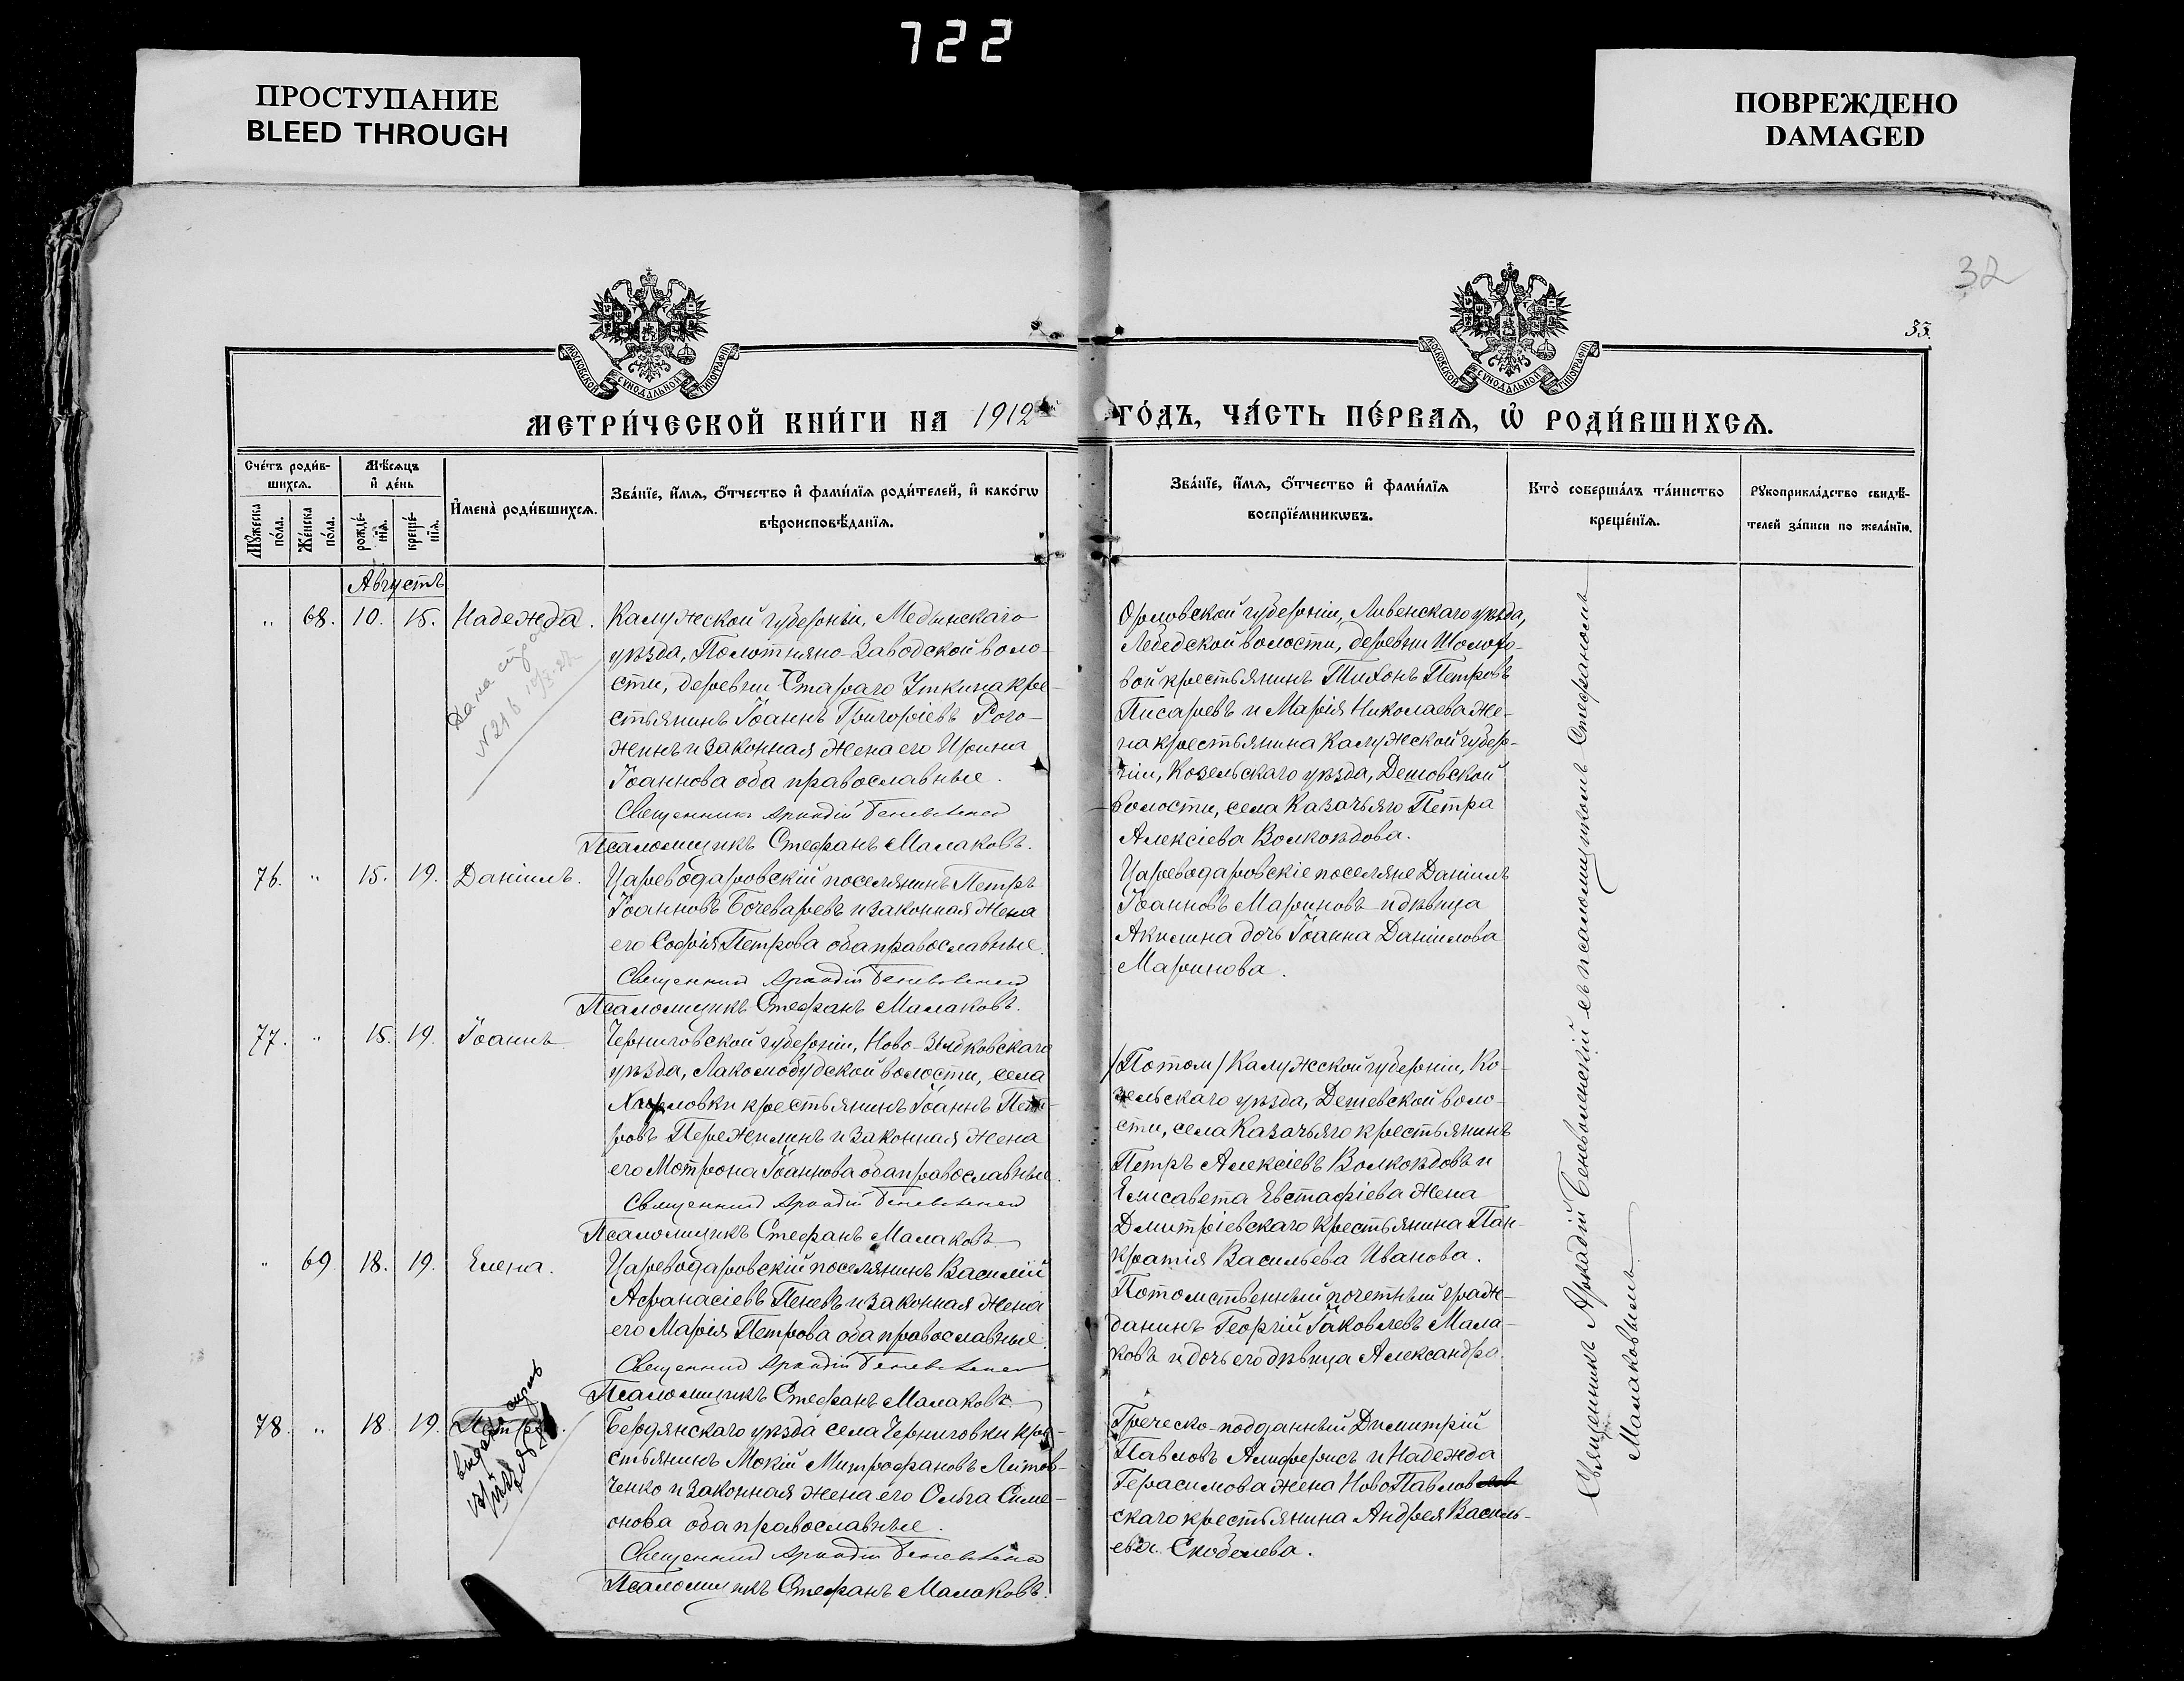 722
ПРОСТУПАНИЕ
BLEED THROUGH
ПОВРЕЖДЕНО
DAMAGED
32
33.
МОСКОВСКОЙ СѴНОДАЛЬНОЙ ТИПОГРАФІИ
МОСКОВСКОЙ СѴНОДАЛЬНОЙ ТИПОГРАФІИ
МЕТРИ́ЧЕСКОЙ КНИ́ГИ НА 1912
ГО́ДЪ, ЧА́СТЬ ПЕ́РВАѦ, Ѡ҆ РОДИ́ВШИХСѦ.
Сче́тъ роди́в-
шихсѧ.
Мѣ́сѧцъ
и҆ де́нь
Мꙋ́жеска
по́ла.
Же́нска
по́ла.
рожде́-
нїѧ.
креще́-
нїѧ.
И҆мена̀ роди́вшихсѧ.
Зва́нїе, и҆́мѧ, ѻ҆́тчество и҆ фами́лїѧ роди́телей, и҆ како́гѡ
вѣроисповѣ́данїѧ.
Зва́нїе, и҆́мѧ, ѻ҆́тчество и҆ фами́лїѧ
воспрїе́мникѡвъ.
Кто̀ соверша́лъ та́инство
креще́нїѧ.
Рꙋкоприкла́дство свидѣ́-
телей за́писи по жела́нїю.
Августъ
„ 68. 10. 15. Надежда.
Калужской губерніи, Медынскаго
уѣзда, Полотняно-Заводской воло-
сти, деревни Стараго Уткина кре-
стьянинъ Іоаннъ Григоріевъ Рого-
жинъ и законная жена его Ирина
Іоаннова оба православные.
Священникъ Аркадій Беневоленскій
Псаломщикъ Стефанъ Малаковъ.
Орловской губерніи, Ливенскаго уѣзда,
Лебедской волости, деревни Шолохо-
вой крестьянинъ Тихонъ Петровъ
Писаревъ и Марія Николаева же-
на крестьянина Калужской губер-
ніи, Козельскаго уѣзда, Дешовской
волости, села Казачьяго Петра
Алексіева Волкоѣдова.
76. „ 15. 19. Даніилъ.
Цареводаровскій поселянинъ Петръ
Іоанновъ Бочеваровъ и законная жена
его Софія Петрова оба православные.
Священникъ Аркадій Беневоленскій
Псаломщикъ Стефанъ Малаковъ.
Цареводаровскіе поселяне Даніилъ
Іоанновъ Мариновъ и дѣвица
Акилина дочь Іоанна Даніилова
Маринова.
77. „ 15. 19. Іоаннъ
Черниговской губерніи, Ново-Зыбковскаго
уѣзда, Лакомобудской волости, села
крестьянинъ Іоаннъ Пет-
ровъ Пережилинъ и законная жена
его Мотрона Іоаннова оба православные.
Священникъ Аркадій Беневоленскій
Псаломщикъ Стефанъ Малаковъ
/Потом/ Калужской губерніи, Ко-
зельскаго уѣзда, Дешевской воло-
сти, села Казачьяго крестьянинъ
Петръ Алексіевъ Волкоѣдовъ и
Елисавета Евстафіева жена
Дмитріевскаго крестьянина Пан-
кратія Васильева Иванова.
„ 69 18. 19. Елена.
Цареводаровскій поселянинъ Василій
Афанасіевъ Пеневъ и законная жена
его Марія Петрова оба православные.
Священникъ Аркадій Беневоленскій
Псаломщикъ Стефанъ Малаковъ.
Потомственный почетный граж-
данинъ Георгій Іаковлевъ Мала-
ковъ и дочь его дѣвица Александра.
78. „ 18. 19. Петръ.
Бердянскаго уѣзда села Черниговки кре-
стьянинъ Мокій Митрофановъ Литов-
ченко и законная жена его Ольга Симе-
онова оба православные.
Священникъ Аркадій Беневоленскій
Псаломщикъ Стефанъ Малаковъ.
Греческо-подданный Димитрій
Павловъ Алиферисъ и Надежда
Герасимова жена НовоПавлов
скаго крестьянина Андрея Василь-
ева Скобелева.
Священникъ Аркадій Беневоленскій съ псаломщикомъ Стефаномъ
Малаковымъ.